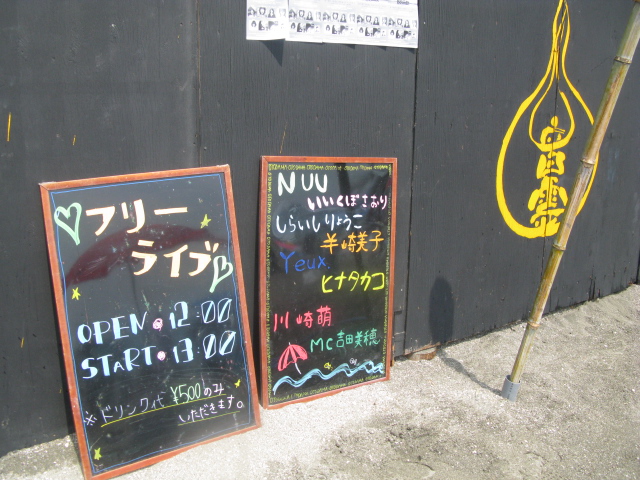 フリー
ライブ
OPEN 12:00
START 13:00
※ドリンク代¥500のみ
いただきます。
NUU
いいくぼさおり
しらいしりょうこ
半崎美子
Yeux
ヒナタカコ
川崎萌
MC吉田美穂
音霊